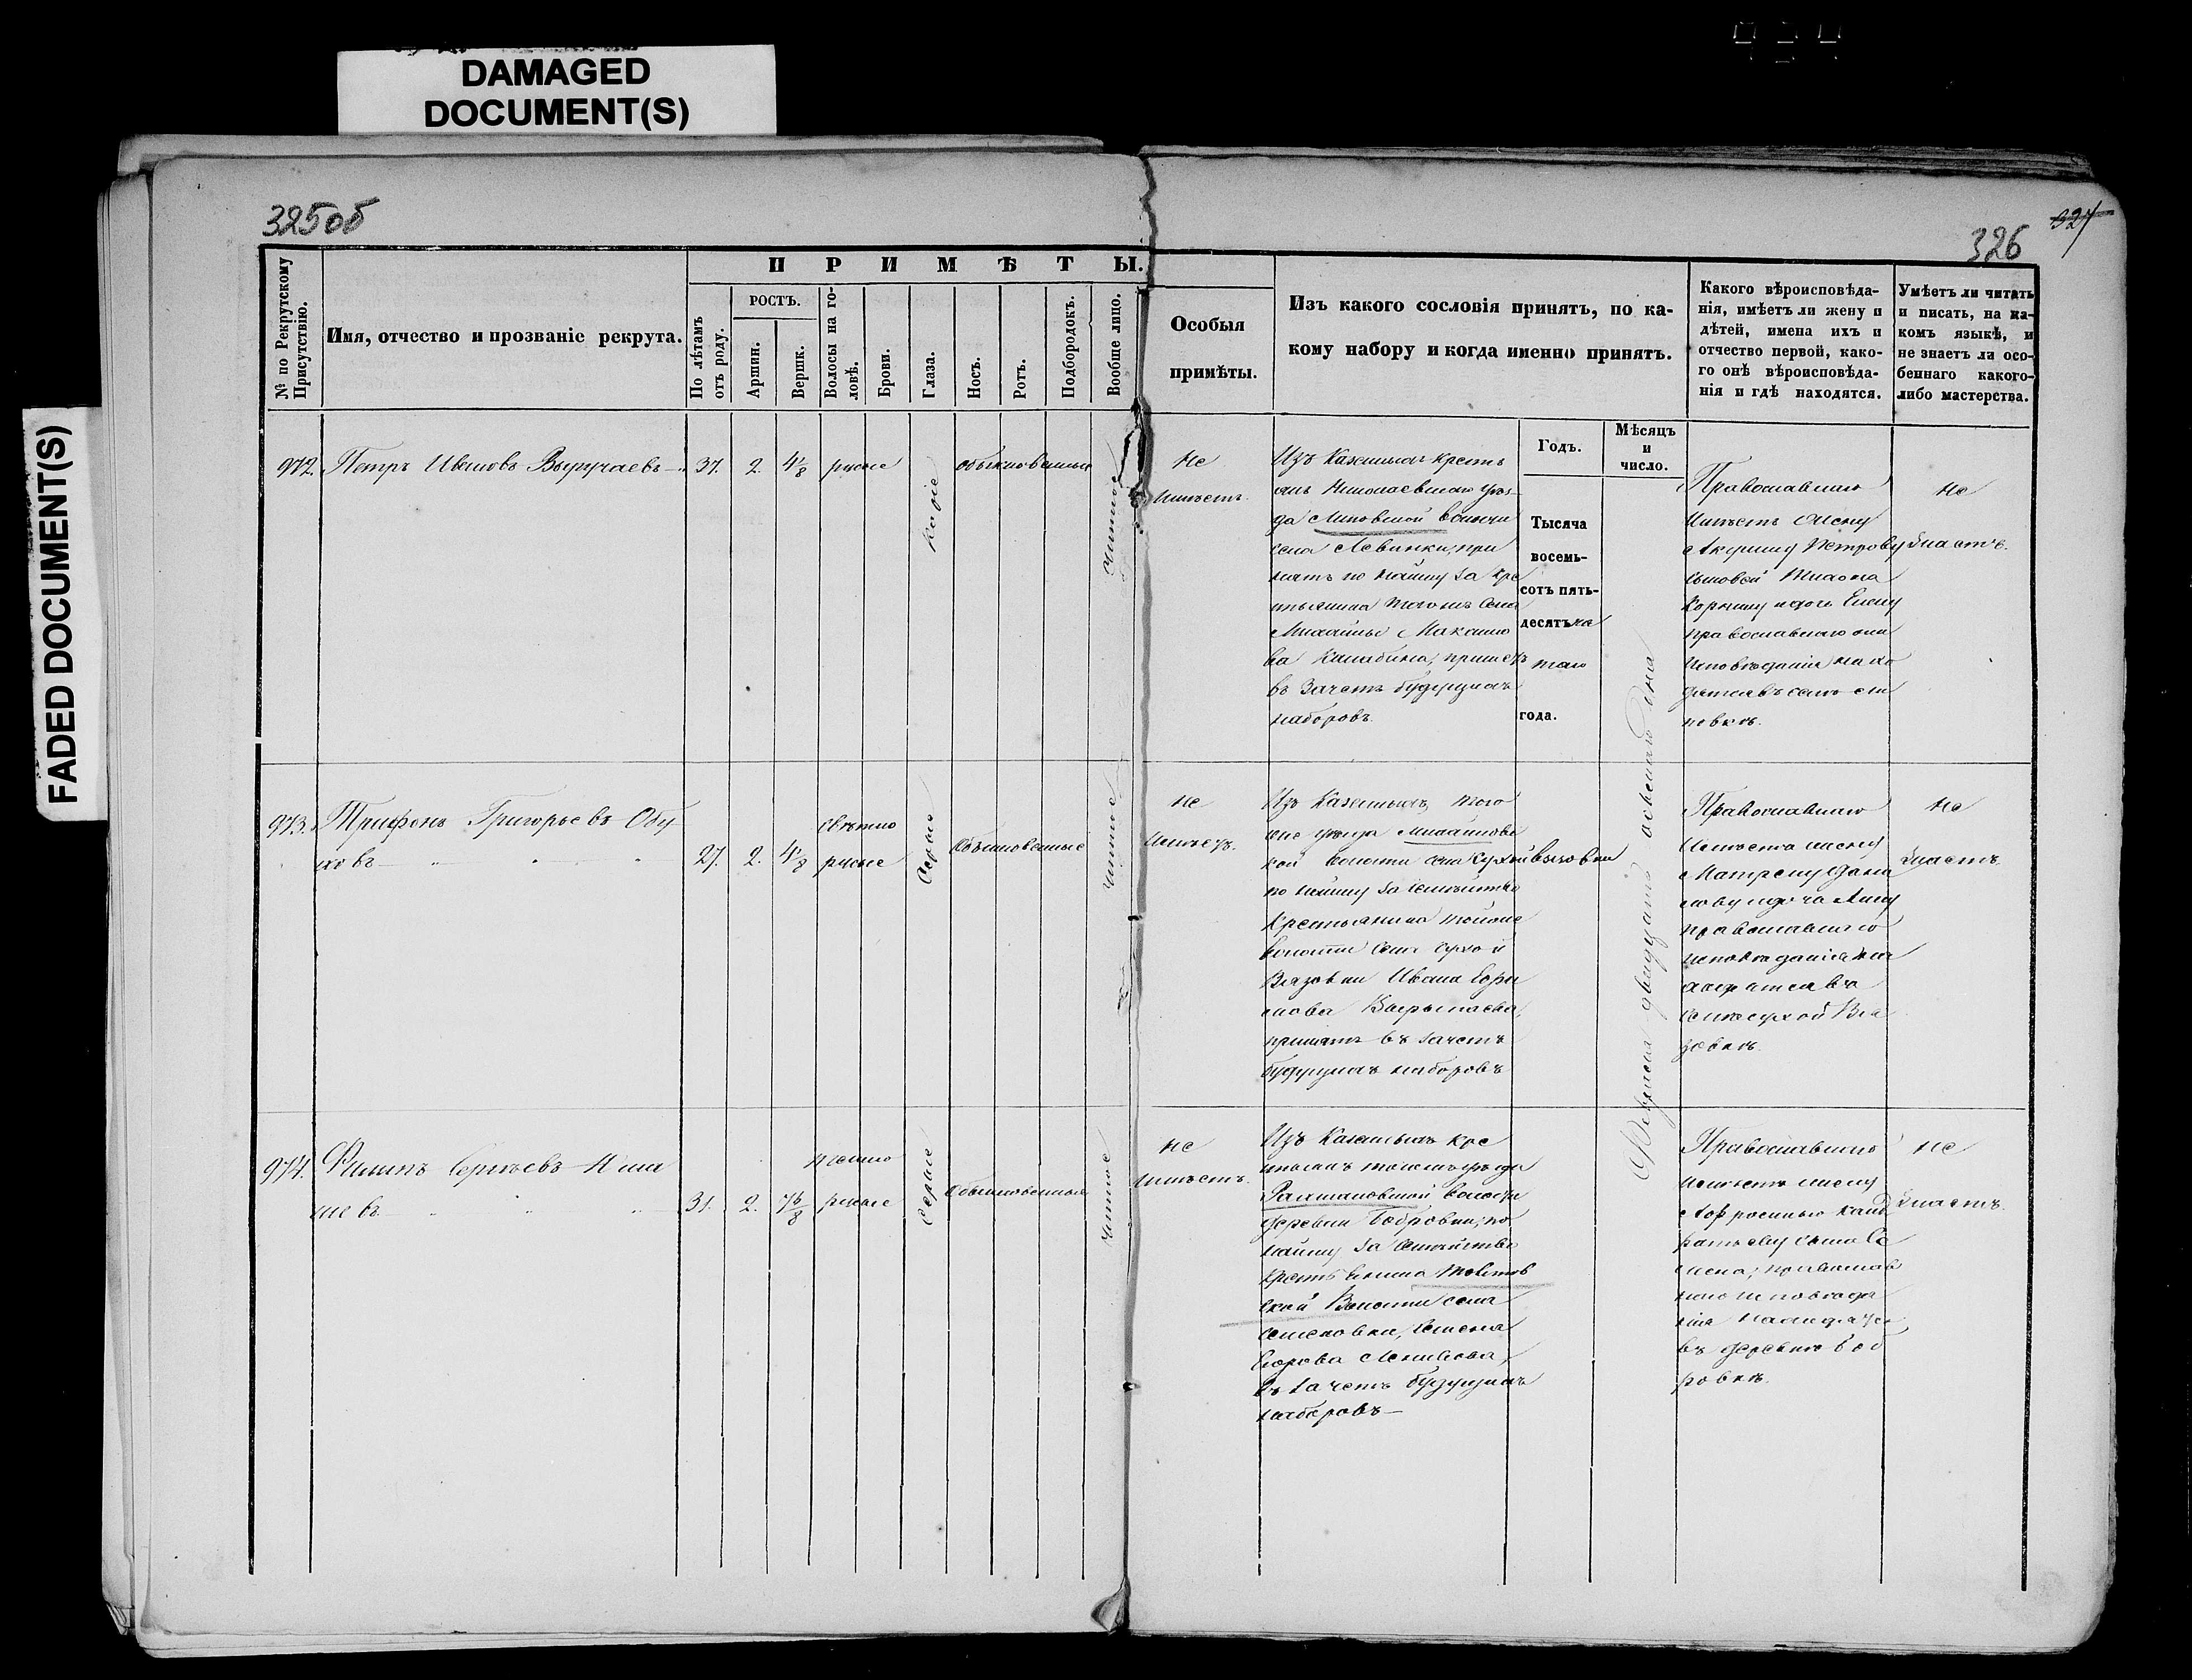 DAMAGED
DOCUMENT(S)
FADED DOCUMENT(S)
325об
326
327
№ по Рекрутскому
Присутствію.
Имя, отчество и прозваніе рекрута.
ПРИМѢТЫ.
По лѣтамъ
отъ роду.
РОСТЪ.
Аршин.
Вершк.
Волосы на го-
ловѣ.
Брови.
Глаза.
Носъ.
Ротъ.
Подбородокъ.
Вообще лицо.
Особыя
примѣты.
Изъ какого сословія принятъ, по ка-
кому набору и когда именно принятъ.
Годъ.
Мѣсяцъ
и
число.
Какого вѣроисповѣда-
нія, имѣетъ ли жену и
дѣтей, имена ихъ и
отчество первой, како-
го онѣ вѣроисповѣда-
нія и гдѣ находятся.
Умѣетъ ли читать
и писать, на ка-
комъ языкѣ, и
не знаетъ ли осо-
беннаго какого-
либо мастерства.
972.
Петръ Ивановъ
37.
2.
4 1/8
русые
Каріе
обыкновенные
Чистое
Не
имѣетъ.
Изъ Казенныхъ кресть
янъ Николаевскаго уѣз-
да Липовской волости
села Левинки, при
нятъ по найму за кре
стьянина того жъ села
Михайлы Максимо
ва принятъ
въ зачетъ будущихъ
наборовъ.
Тысяча
восемь-
сотъ пять-
десять
таго
года.
Февраля двадцать осьмаго дня
Православнаго
имѣетъ жену
Акулину Петрову
сыновей
и дочь Елену
православнаго они
исповѣданія нахо
дятся въ селѣ Ли
повкѣ.
Не
знаетъ.
973.
Трифонъ Григорьевъ Обу
ховъ
27.
2.
4 1/8
свѣтло
русые
Сѣрые
Обыкновенные
чистое
не
имѣетъ.
Изъ Казенныхъ, того
же уѣзда Михайловс
кой волости села Сухой Вязовки
по найму за семейство
Крестьянина тойже
волости села Сухой
Вязовки Ивана Ефи
мова
принятъ въ зачетъ
будущихъ наборовъ
Православнаго
имѣетъ жену
Матрену Дани
лову и дочь Анну
православнаго
исповѣданія на
ходятся въ
селѣ Сухой Вя
зовкѣ.
Не
знаетъ.
974.
Филипъ Сергѣевъ
31.
2.
7 6/8
темно
русые
Сѣрые
обыкновенные
чистое
не
имѣетъ.
Изъ Казенныхъ кре
стьянъ тогожъ уѣзда
волости
деревни Бобровки, по
найму за семейство
крестьянина
ской Волости села
Семеновки, Семена
Егорова
въ зачетъ будущихъ
наборовъ
Православнаго
имѣетъ жену
Афросинью Канд
ратьеву сына Се
мена, православ
наго исповѣда
нія находятся
въ деревнѣ Боб
ровкѣ.
не
знаетъ.